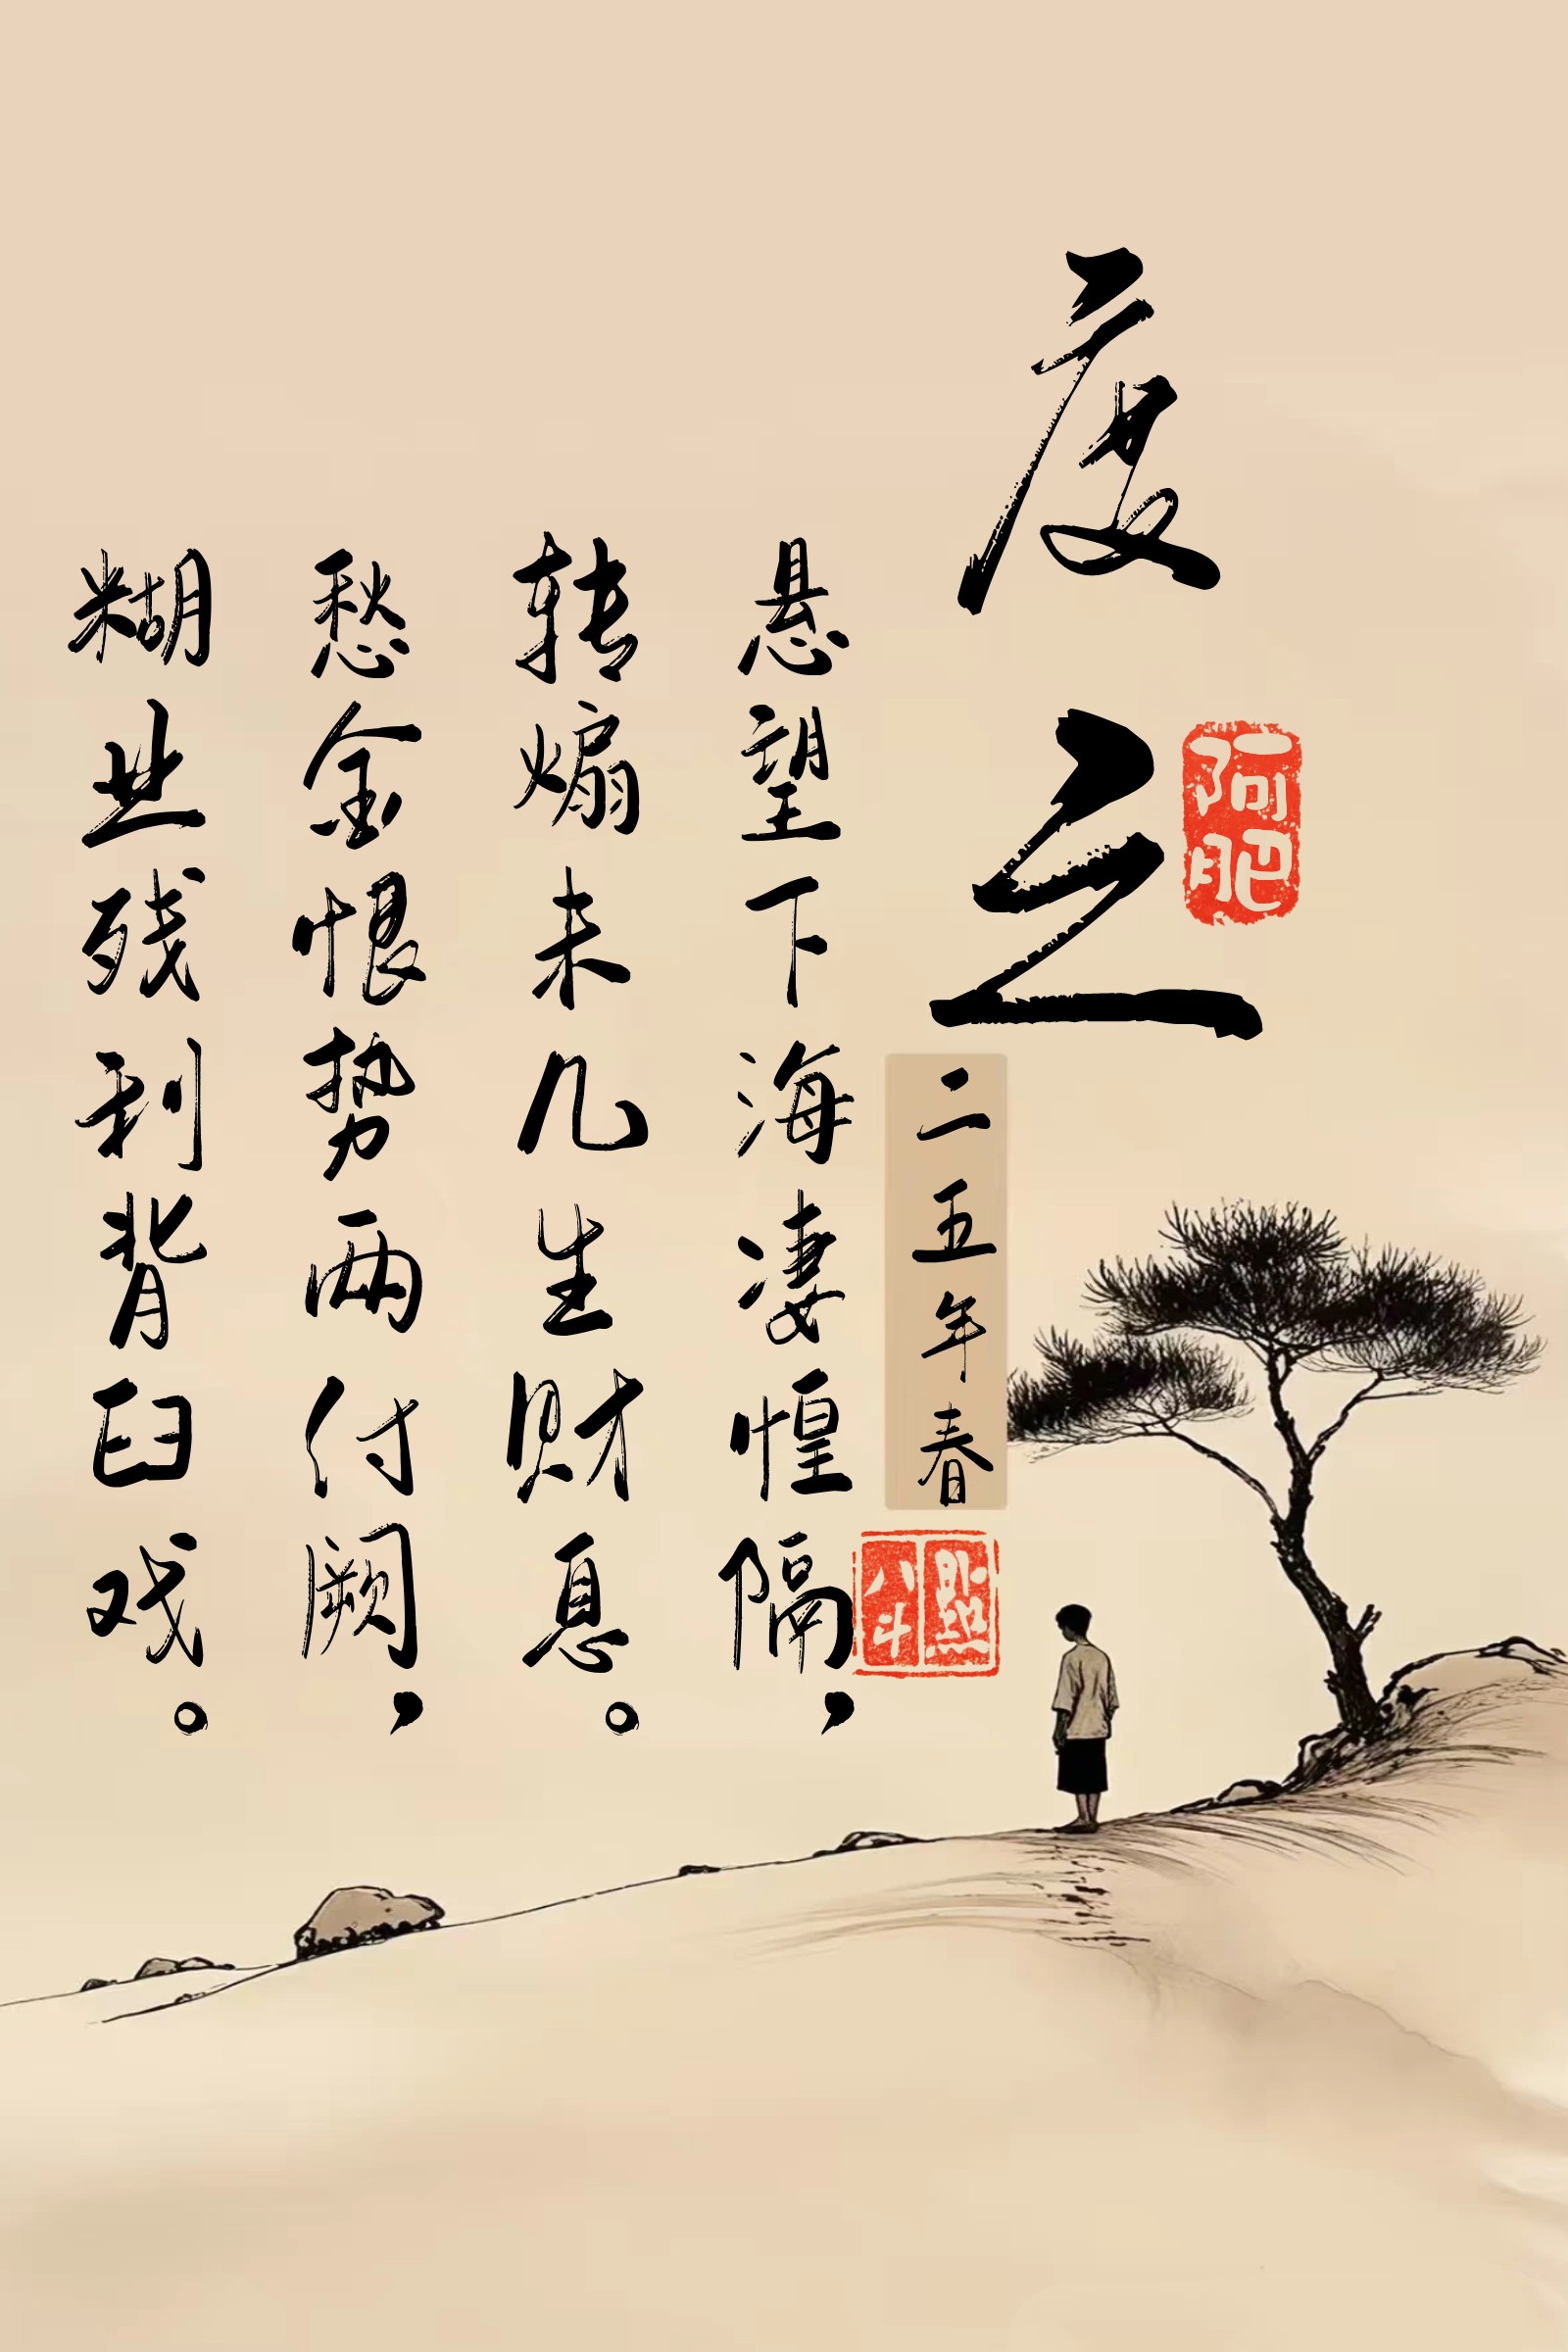 度之
阿肥
二五年春
八斗
點
悬望下海凄惶隔，
转煽未几生财息。
愁金恨势两付阙，
糊业残利背臼戏。